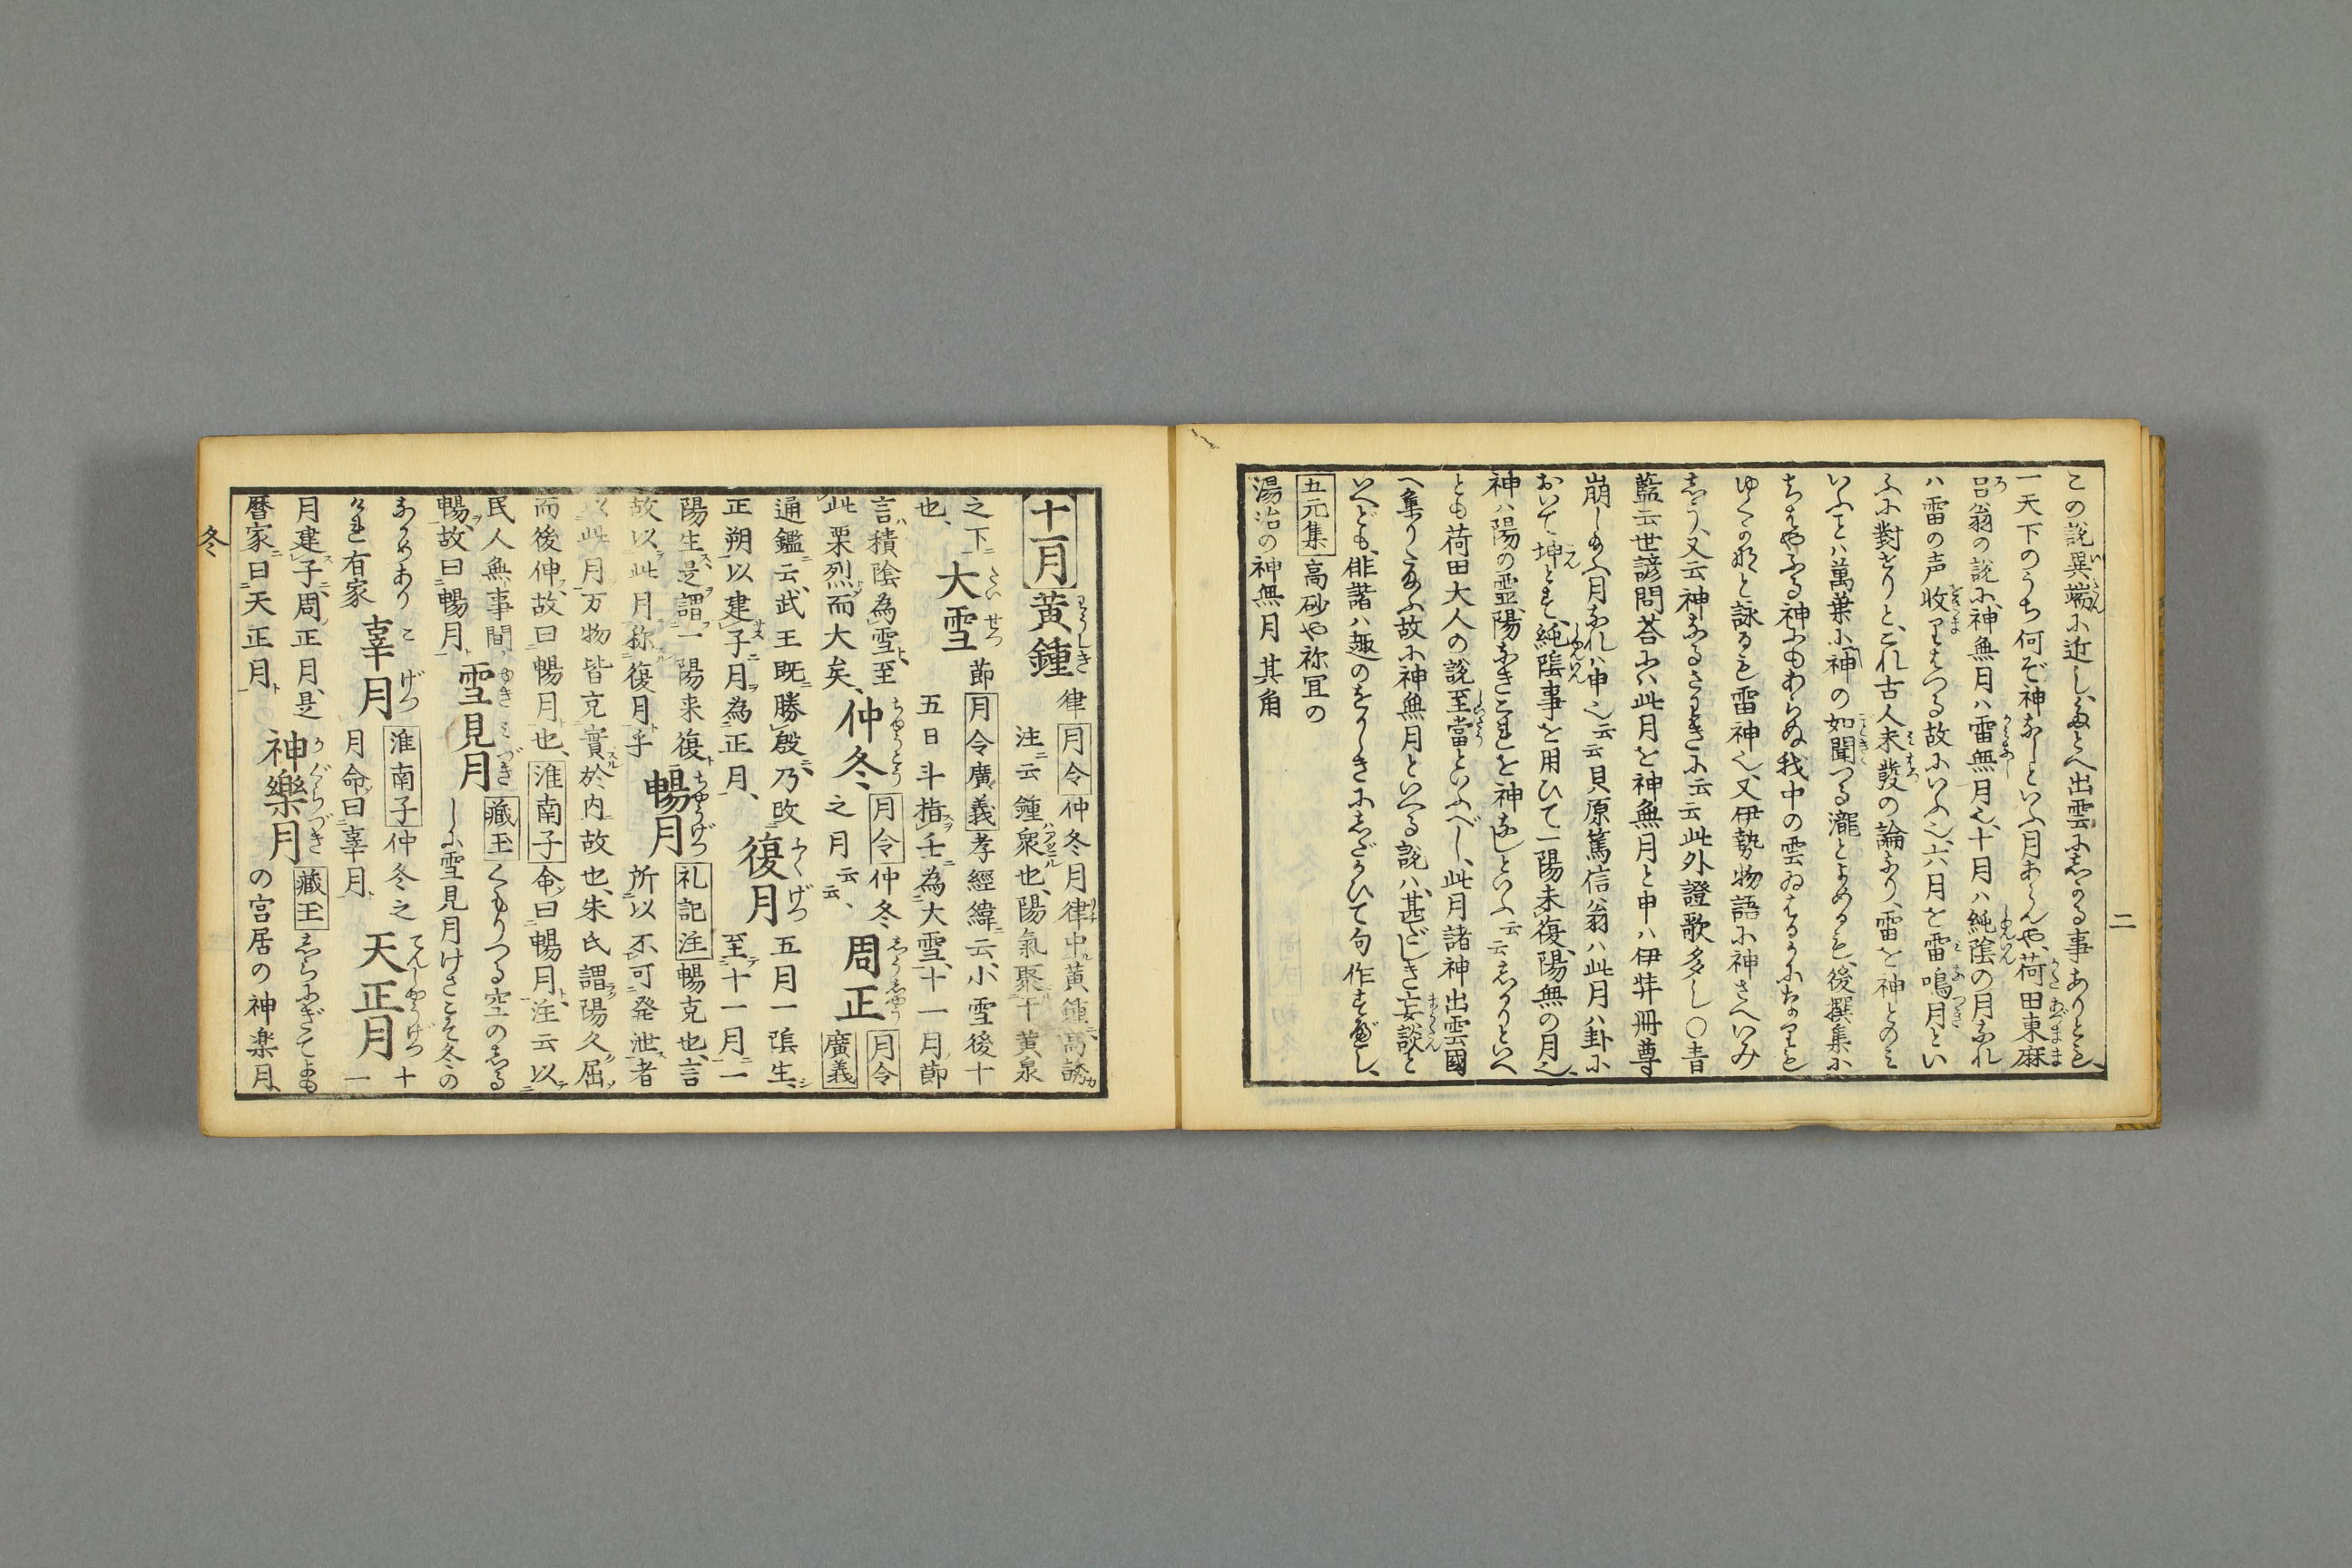 二
この説異端に近し、たとへ出雲にしかる事ありとも、
一天下のうち何ぞ神なしといふ月あらんや、荷田東麻
呂翁の説に、神無月ハ雷無月也、十月ハ純陰の月なれ
ハ雷の声收りはつる故にいふ也、六月を雷鳴月とい
ふに對せりと、これ古人未發の論なり、雷を神とのミ
いふことハ萬葉に神の如聞つる瀧とよめるも、後撰集に
ちはやふる神にもあらぬ我中の雲ゐはるかになりも
ゆくかなと詠るも雷神也、又伊勢物語に神さへいみ
しう、又云神なるさわきに云云此外證歌多し○青
藍云世諺問荅にハ此月を神無月と申ハ伊弉冊尊
崩しのふ月なれハ申也云云貝原篤信翁ハ此月ハ卦に
おいて坤とす、純陰事を用ひて一陽未復、陽無の月也、
神ハ陽の霊、陽なきこれを神なしといふ云云しかりといへ
とも荷田大人の説至當といふべし、此月諸神出雲國
へ集りたまふ故に神無月といへる説ハ、甚だしき妄談と
いへども、俳諧ハ趣のをかしきにしたがひて句作すべし、
五元集 高砂や祢宜の
湯治の神無月 其角
十一月 黄鐘 律 月令 仲冬月律中黄鐘高誘
注云鐘衆也、陽氣聚于黄泉
之下 大雪 節 月令廣義 孝經緯云、小雪後十
也、 五日斗指壬為大雪、十一月節
言積陰為雪至 仲冬 月令 仲冬 周正 月令
此栗烈而大矣、 之月云云、 廣義
通鑑云、武王既勝殷乃改 復月 五月一陰生、
正朔以建子月為正月、 至十一月一
陽生是謂一陽来復 暢月 礼記注 暢充也、言
故以此月称復月乎 所以不可発泄者
以此月万物皆充實於内故也、朱氏謂陽久屈
而後伸、故曰暢月也、 淮南子 命曰暢月、注云以
民人無事間 雪見月 藏玉 くもりつる空のしる
暢、故曰暢月、 しに雪見月けさこそ冬の
あかめあり 辜月 淮南子 仲冬之 天正月 十
けれ有家 月命曰辜月、 一
月建子周正月、是 神樂月 藏玉 しらにぎてよも
暦家曰天正月、 の宮居の神楽月、
冬